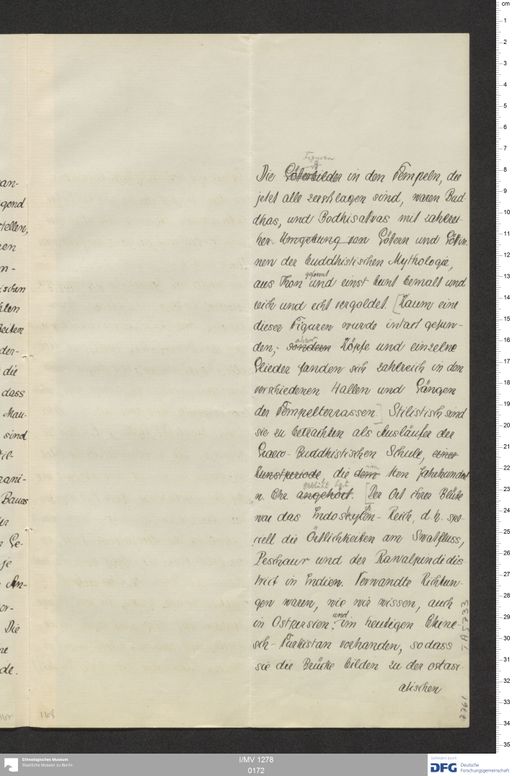 Figuren
Die Götterbilder in den Tempeln, die
jetzt alle zerschlagen sind, waren Bud
dhas, und Bodhisatvas mit zahlrei
cher Umgebung von Göttern und Göttin
nen der buddhistischen Mythologie,
geformt
aus Thon und einst bunt bemalt und
reich und echt vergoldet. [Kaum eine
dieser Figuren wurde intact gefun-
den, sondern Köpfe und einzelne
Glieder fanden sich zahlreich in den
verschiedenen Hallen und Gängen
der Tempelterrassen]. Stilistisch sind
sie zu betrachten als Ausläufer der
Graeco-Buddhistischen Schule, einer
Kunstperiode, die dem ten Jahrhundert
n. Chr. angehört. [Der Ort ihrer Blüte
war das Indoskyten-Reich, d.h. spe-
ciell die Örtlichkeiten am Swatfluss,
Peschaur und der Rawalpindi dis
trict in Indien. Verwandte Richtun-
gen waren, wie wir wissen, auch
und
in Ostpersien im heutigen Chine-
sch-Turkistan vorhanden, sodass
sie die Brücke bilden zu der ostasi
atischen
an-
gend
stellen,
m-
ischen
hten
Beiken
den-
die
dass
Mau-
sind
rani-
Baues
Ge-
je
An-
or-
Die
ne
de.
1168
TA 5733
cm
1
2
3
4
5
6
7
8
9
10
11
12
13
14
15
16
17
18
19
20
21
22
23
24
25
26
27
28
29
30
31
32
33
34
35
Ethnologisches Museum
Staatliche Museen zu Berlin
I/MV 1278
0172
DFG Deutsche
Forschungsgemeinschaft